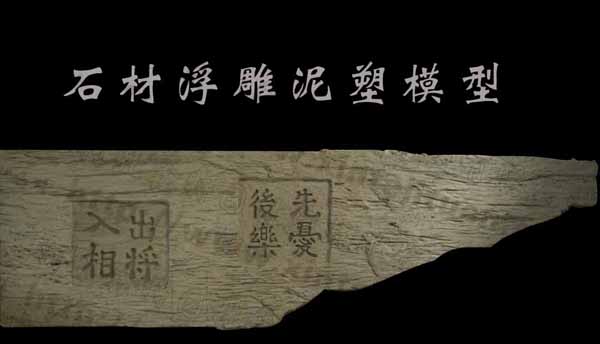 石材浮雕泥塑模型
先憂
後樂
出将
入相